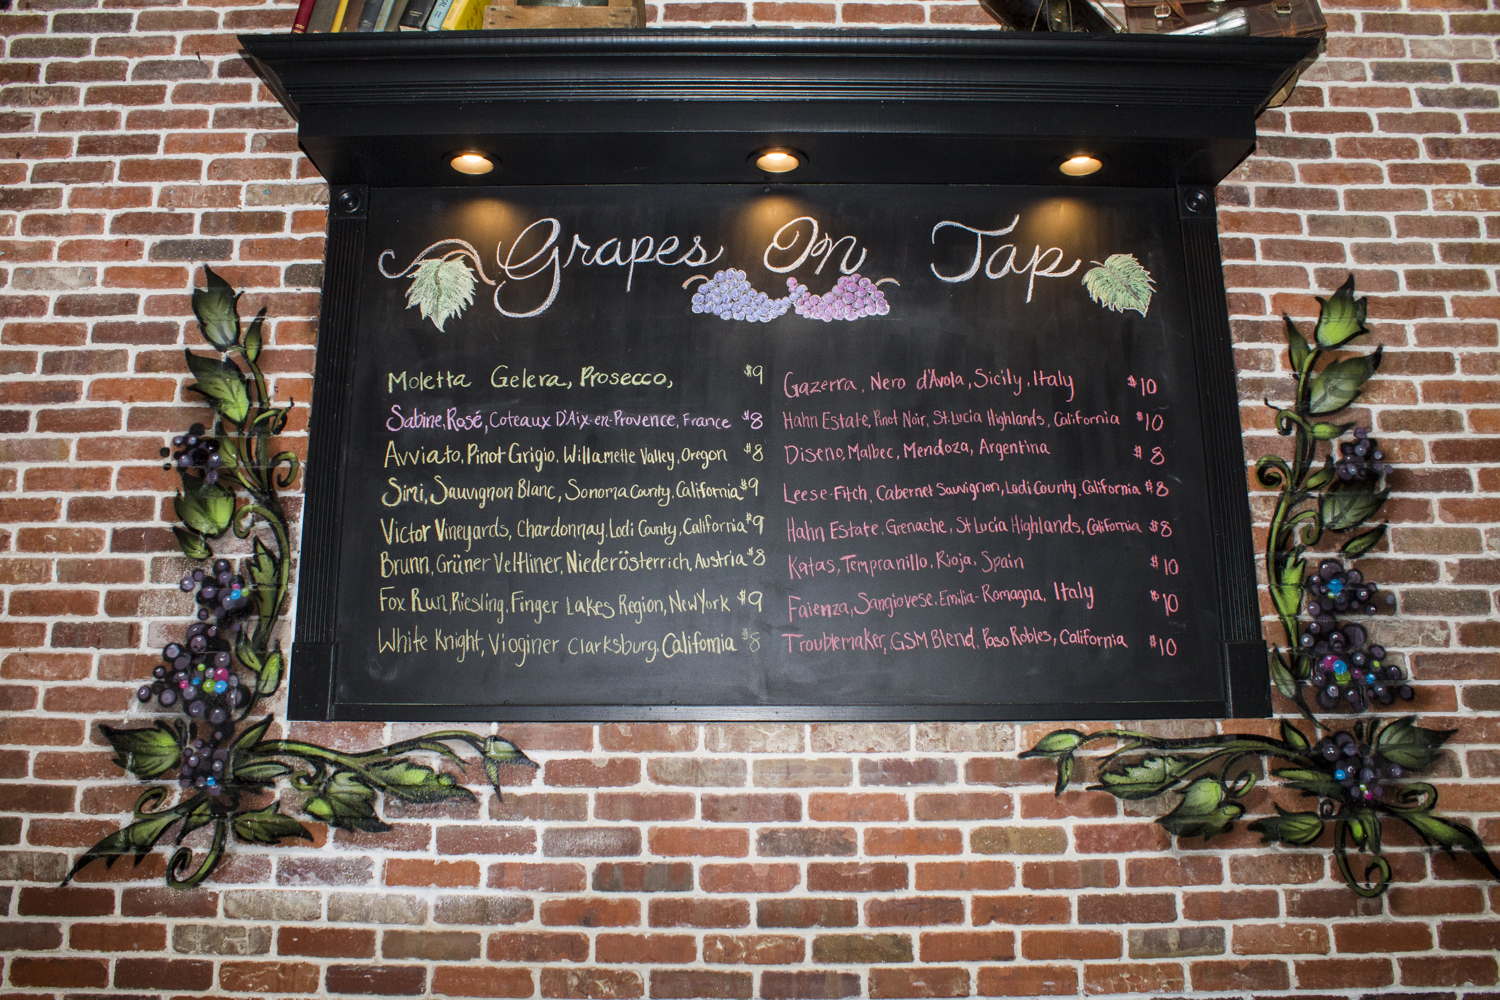 Grapes On Tap
Moletta Gelera, Prosecco, $9
Sabine, Rosé, Coteaux D'Aix-en-Provence, France $8
Avviato, Pinot Grigio, Willamette Valley, Oregon $8
Simi, Sauvignon Blanc, Sonoma County, California $9
Victor Vineyards, Chardonnay, Lodi County, California $9
Brunn, Grüner Veltliner, Niederösterrich, Austria $8
Fox Run, Riesling, Finger Lakes Region, New York $9
White Knight, Vioginer Clarksburg, California $8
Gazerra, Nero d'Avola, Sicily, Italy $10
Hahn Estate, Pinot Noir, St. Lucia Highlands, California $10
Diseno, Malbec, Mendoza, Argentina $8
Leese-Fitch, Cabernet Sauvignon, Lodi County, California $8
Hahn Estate, Grenache, St Lucia Highlands, California $8
Katas, Tempranillo, Rioja, Spain $10
Faienza, Sangiovese, Emilia-Romagna, Italy $10
Troublemaker, GSM Blend, Paso Robles, California $10